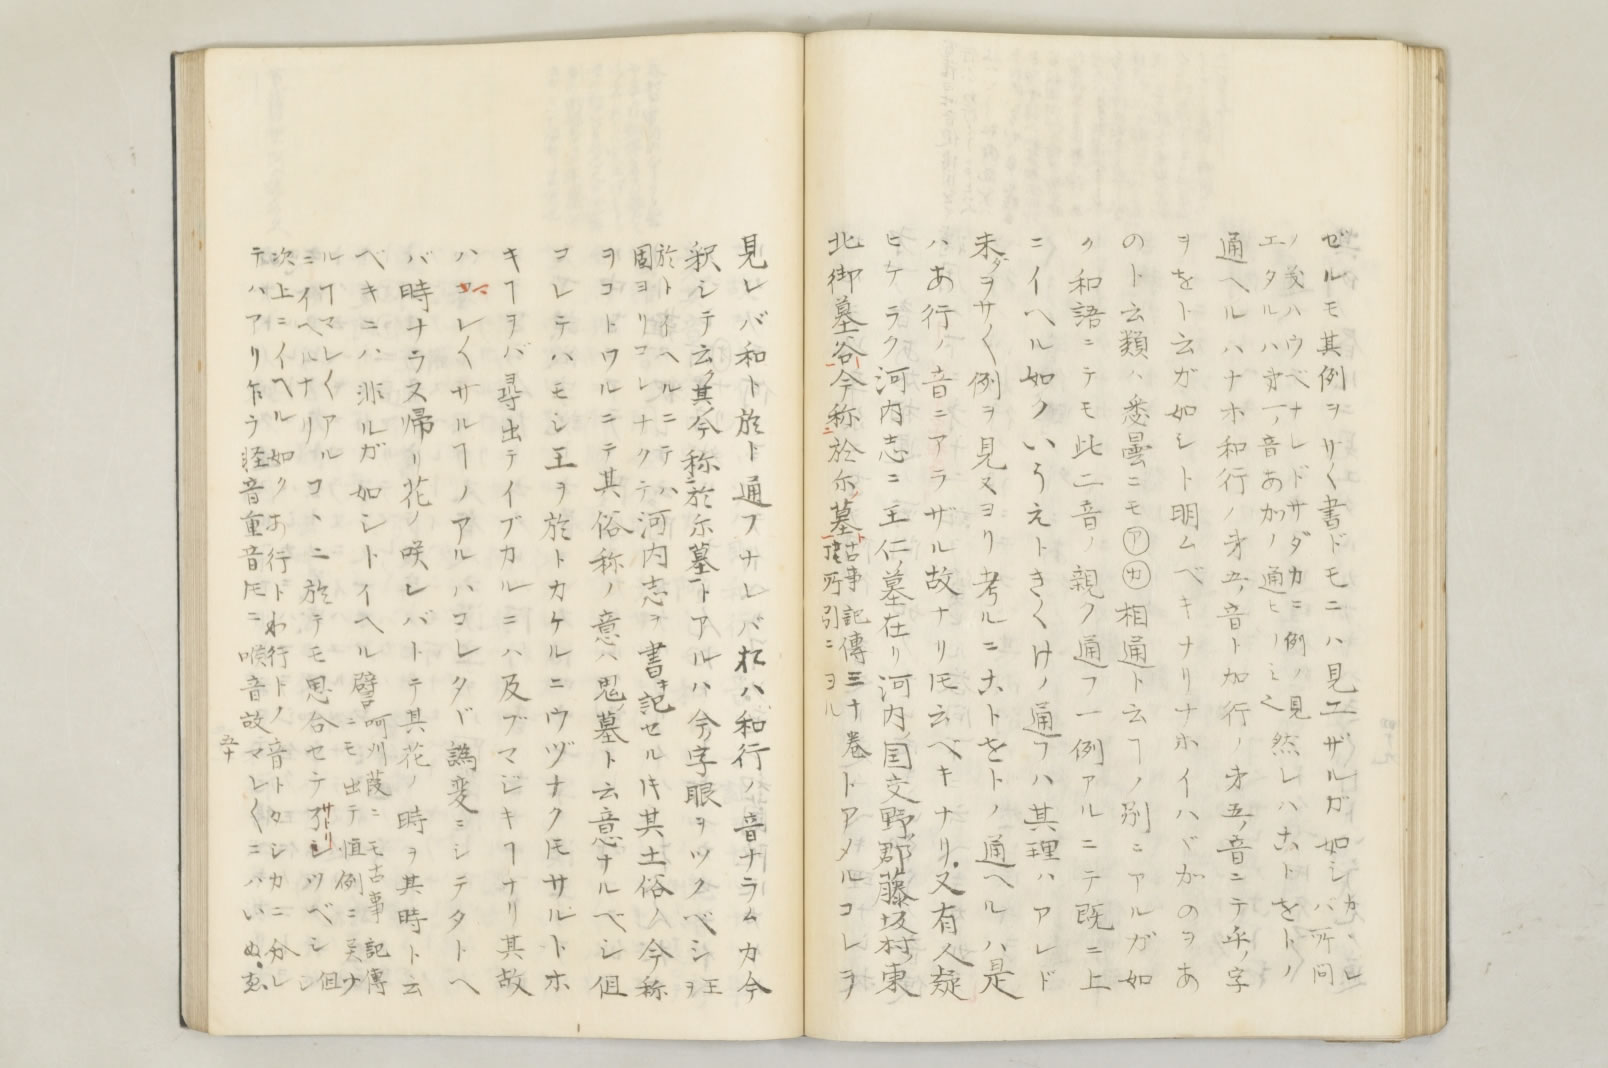 ゼルモ其例ヲリ〱書ドモニハ見エザルガ如シカヽレバ所問
ノ義ハウベナレドサダカニ例ノ見エタルハ才一ノ音あかノ通ヒノミ之然レハおトをトノ
通ヘルハナホ和行ノ才五ノ音ト加行ノ才五ノ音ニテ乎ノ字
ヲをト云ガ如シト明ムベキナリナホイハバがのヲあ
のト云類ハ悉曇ニモアカ相通ト云ヿノ別ニアルガ如
ク和語ニテモ此二音ノ親ク通フ一例アルニテ既ニ上
ニイヘル如クいうえトきくけノ通フハ其理ハアレド
未ダヲサ〱例ヲ見ス又ヨリ考ルニおトをトノ通ヘルハ是
ハあ行ノ音ニアラザル故ナリ𪜈云ベキナリ又有人疑
ヒケラク河内志ニ王仁ノ墓在リ河内ノ国交野郡藤坂村ノ東
北御墓谷今称於尓墓古事記傳三十巻ト所引ニヨルアメルコレヲ
見レバ和ト於ト通フナレバ於ハ和行ノ音ナラムカ今
釈シテ云ク其ノ今称於尓墓トアルハ今ノ字眼ヲツクベシ王ヲ
於トイヘルニテハ河内志ヲ書キ記セル𪜈其土俗ノ今称
固ヨリコレナクテ
ヲコトワルニテ其俗称ノ意ハ鬼墓ト云意ナルベシ但
コレテハモシ王ヲ於トカケルニウヅナク𪜈サルトホ
キヿヲバ尋出テイブカルニハ及ブマジキヿナリ其故
ハコレ〱サルヿノアルハコレタヾ譌変ニシテタトヘ
バ時ナラス帰リ花ノ咲レバトテ其花ノ時ヲ其時ト云
ベキニハ非ルガ如シトイヘル譬呵刈葭ニモ古事記傳ニモ出テ恒例ニ
ルヿマレ〱アルコヽニ於テモ思合セテサトリツベシ但シ
ニイヘルナリ
次上ニイヘル如クあ行トわ行トノ音トタシカニ分レ
テハアリ乍ラ軽音重音𪜈ニ喉音故マレ〱ニハいゐえ
五十